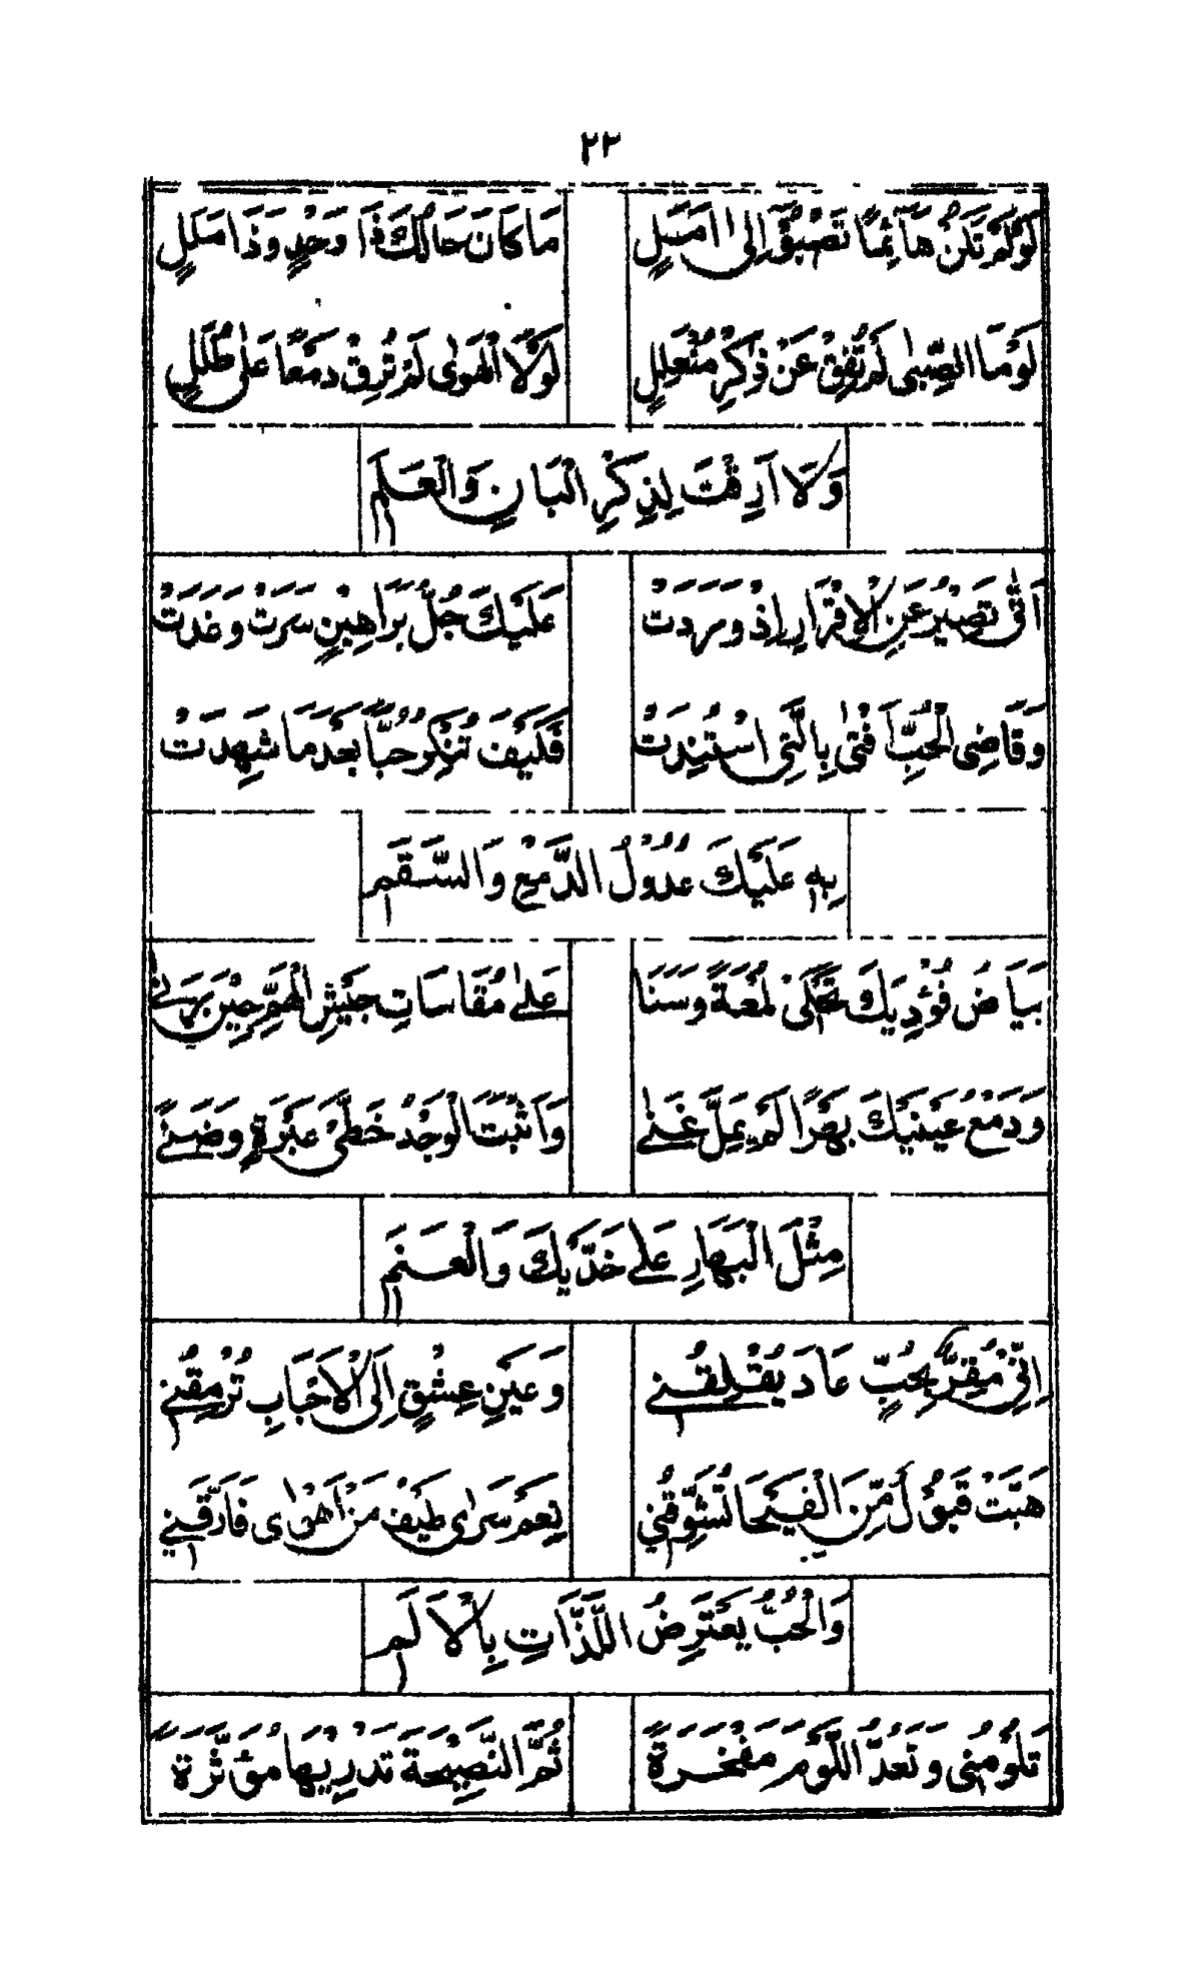 ٢٢
لَوْ لَمْ تَكُنْ هَآئِمًا تَصْبُوْۤ اِلٰى اَمَلٍ مَا كَانَ حَالُكَ ذَا وَجْدٍ وَذَا مَلَلٍ
لَوْمَا الصِّبٰى لَمْ تُفِقْ عَنْ ذِكْرِ مُتَعَلِلٍ لَوْلَا الْهَوٰى لَمْ تُرِقْ دَمْعًا عَلٰى طَلَلٍ
وَلَا اَرِقْتَ لِذِكْرِ الْبَانِ وَالْعَلَمِ
اَنّٰى تَصِيْرُ عَنِ الْاِقْرَارِ اِذْ وَرَدَتْ عَلَيْكَ جُلُّ بَرَاهِيْنٍ سَرَتْ وَغَدَتْ
وَقَاضِى الْحُبِّ اَفْتٰى بِالَّتِى اسْتُنِدَتْ فَكَيْفَ تُنْكِرُ حُبًّا بَعْدَ مَا شَهِدَتْ
بِهٖ عَلَيْكَ عُدُوْلُ الدَّمْعِ وَالسَّقَمِ
بَيَاضُ فُوْدِيْكَ تَحْكِىْ لَمْعَةً وَسَنَا عَلٰى مُقَاسَاتِ جَيْشِ الْهَمِّ حِيْنَ
وَدَمْعُ عَيْنَيْكَ بَحْرًا لَمْ يَمِلَّ غَنٰى وَاَثْبَتَ الْوَجْدُ خَطَّىْ عَبْرَةٍ وَضَنًى
مِثْلَ الْبَهَارِ عَلٰى خَدَّيْكَ وَالْعَنَمِ
اِنِّىْ مُقِرٌّ بِحُبٍّ عَادَ يُقْلِقُنِى وَعَيْنِ عِشْقٍ اِلَى الْاَحْبَابِ تُرْمِقُنِى
هَبَّتْ قَبُوْلٌ مِّنَ الْفَيْحَا تُشَوِّقُنِى نَعَمْ سَرٰى طَيْفُ مَنْ اَهْوٰى فَاَرَّقَنِى
وَالْحُبُّ يَعْتَرِضُ اللَّذَّاتِ بِالْاَلَمِ
تَلُوْمُنِى وَتَعُدُّ اللَّوْمَ مَفْخَرَةً ثُمَّ النَّصِيْحَةَ تَدْرِيْهَا مُؤَثِّرَةً